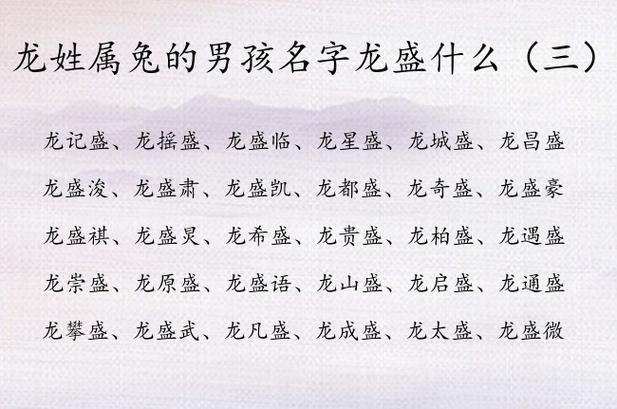 龙姓属兔的男孩名字龙盛什么（三）
龙记盛、龙摇盛、龙盛临、龙星盛、龙城盛、龙昌盛
龙盛浚、龙盛肃、龙盛凯、龙都盛、龙奇盛、龙盛豪
龙盛祺、龙盛炅、龙希盛、龙贵盛、龙柏盛、龙遇盛
龙崇盛、龙原盛、龙盛语、龙山盛、龙启盛、龙通盛
龙攀盛、龙盛武、龙凡盛、龙成盛、龙太盛、龙盛微